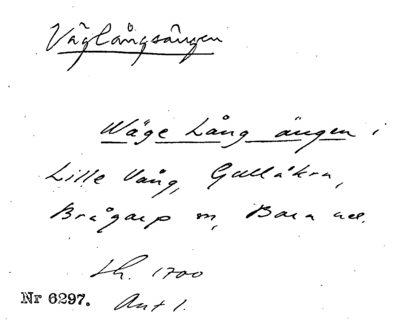 Väglångsängen
Wäge Lång ängen i
Lille Vång, Gullåkra,
Brågarp sn, Bara hd.
Lh. 1700
Nr 6297. Akt 1.